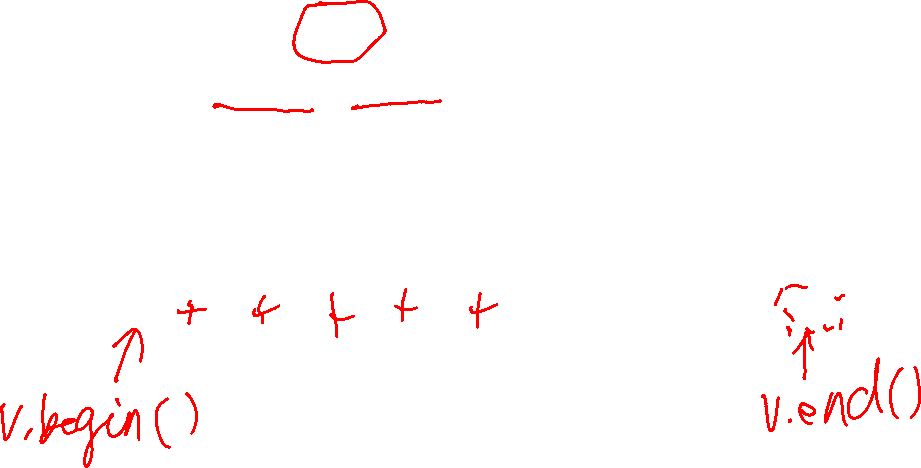 + + + + +
v.begin() v.end()